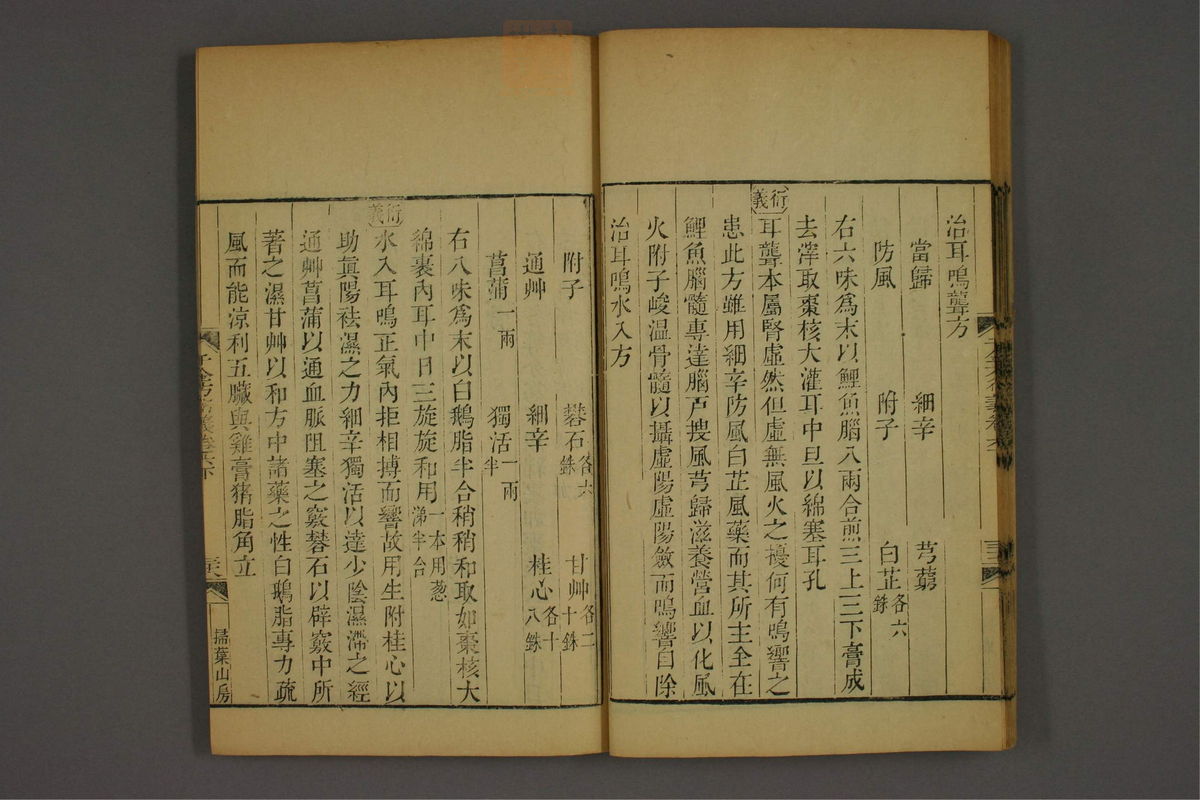 治耳鳴聾方
當歸 細辛 芎藭
防風 附子 白芷各六銖
右六味爲末以鯉魚腦八兩合煎三上三下膏成
去滓取棗核大灌耳中旦以綿塞耳孔
衍義 耳聾本屬腎虛然但虛無風火之擾何有鳴響之
患此方雖用細辛防風白芷風藥而其所主全在
鯉魚腦髓專達腦戸搜風芎歸滋養營血以化風
火附子峻溫骨髓以攝虛陽虛陽斂而鳴響自除
治耳鳴水入方
附子 礬石各六銖 甘艸各二十銖
通艸 細辛 桂心各十八銖
菖蒲一兩 獨活一兩半
右八味爲末以白鵝脂半合稍稍和取如棗核大
綿裹內耳中日三旋旋和用一本用葱涕半合
衍義 水入耳鳴正氣內拒相搏而響故用生附桂心以
助眞陽祛濕之力細辛獨活以達少陰濕滯之經
通艸菖蒲以通血脈阻塞之竅礬石以辟竅中所
著之濕甘艸以和方中諸藥之性白鵝脂專力疏
風而能涼利五臟與雞膏豬脂角立
掃葉山房